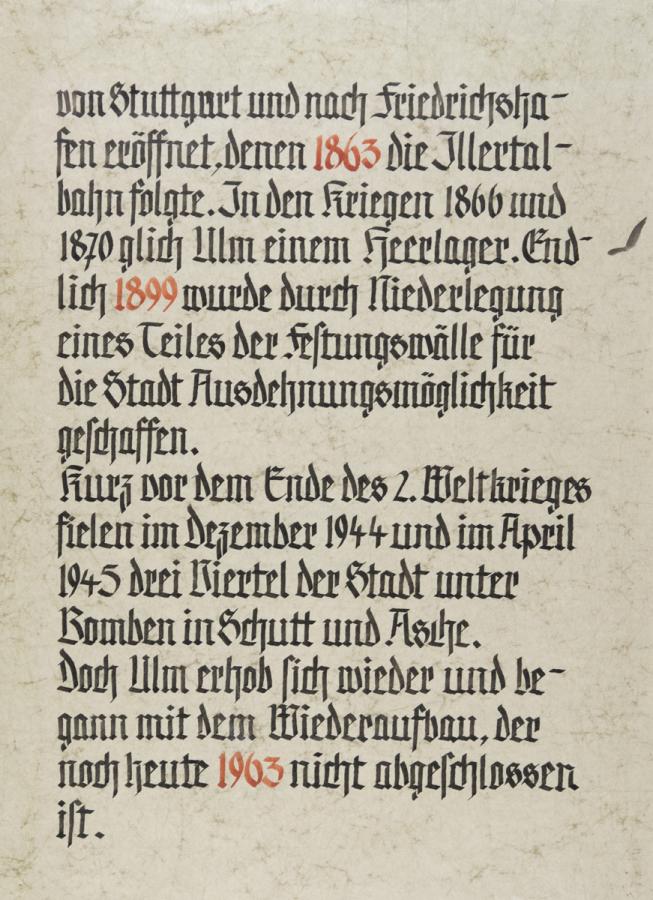 von Stuttgart und nach Friedrichsha-
fen eröffnet, denen 1863 die Illertal-
bahn folgte. In den Kriegen 1866 und
1870 glich Ulm einem Heerlager. End-
lich 1899 wurde durch Niederlegung
eines Teiles der Festungswälle für
die Stadt Ausdehnungsmöglichkeit
geschaffen.
Kurz vor dem Ende des 2. Weltkrieges
fielen im Dezember 1944 und im April
1945 drei Viertel der Stadt unter
Bomben in Schutt und Asche.
Doch Ulm erhob sich wieder und be-
gann mit dem Wiederaufbau, der
noch heute 1963 nicht abgeschlossen
ist.